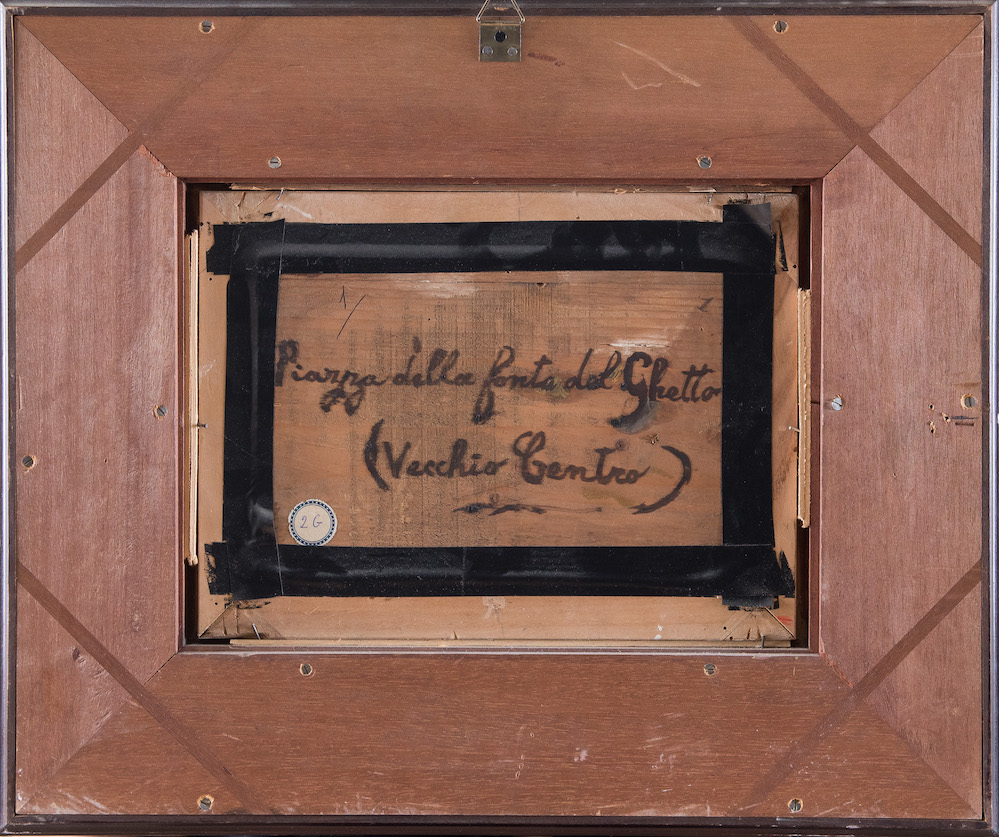 1/
1
Piazza della fonte del Ghetto
(Vecchio Centro)
2G